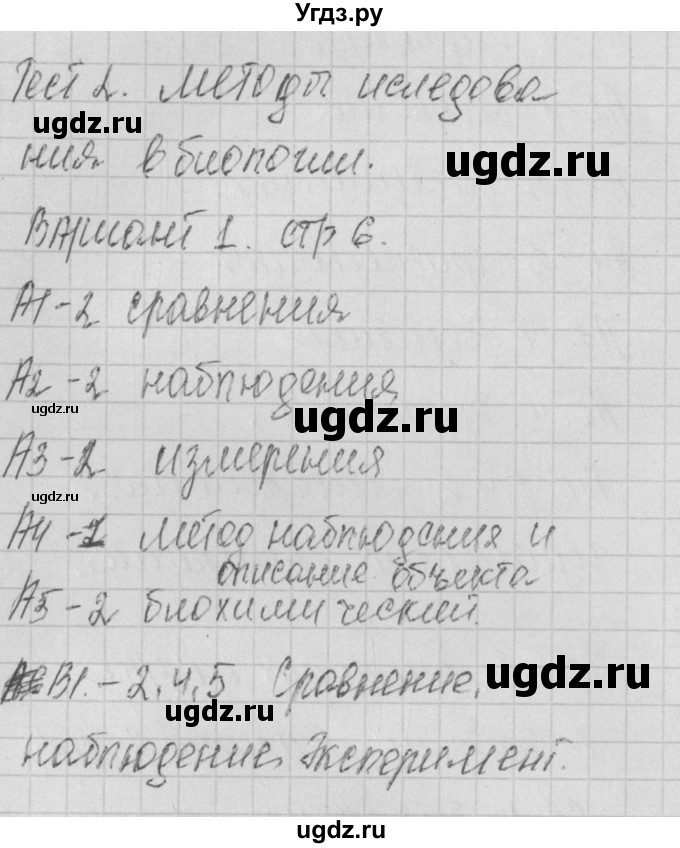 Угдз.ру
Тест 2. Методы иследова
ugdz.ru
ния в биологии.
ugdz.ru
Вариант 1. стр 6.
А1-2 сравнения
А2-2 наблюдения
ugdz.ru
ugdz.ru
А3-2 измерения
ugdz.ru
А4-1 метод наблюдения и
описание объекта
А5-2 биохимический.
В1.-2,4,5 Сравнение,
ugdz.ru
ugdz.ru
наблюдение, Эксперимент.
ugdz.ru